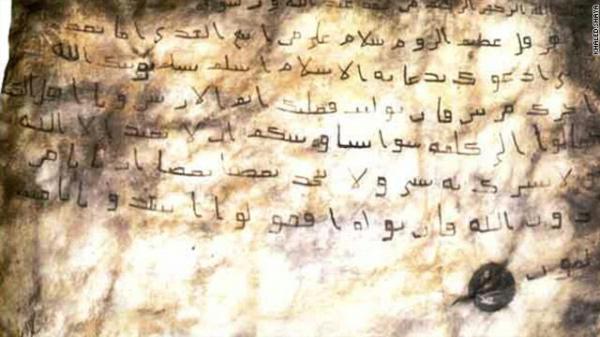 الله الرحمن الرحيم من محمد عبد الله ورسو
هرقل عظيم الروم سلام على من اتبع الهدى اما بعد
ادعوك بدعاية الاسلام اسلم تسلم يوتك الله
اجرك مرتين فان توليت فعليك اثم الاريسين ويا اهل الك
تعالوا الى كلمة سوا بيننا وبينكم ان لا نعبد الا الله
ولا نشرك به شي ولا يتخذ بعضنا بعضا اربابا من
دون الله فان تولوا فقولوا اشهدوا بانا مسل
مون